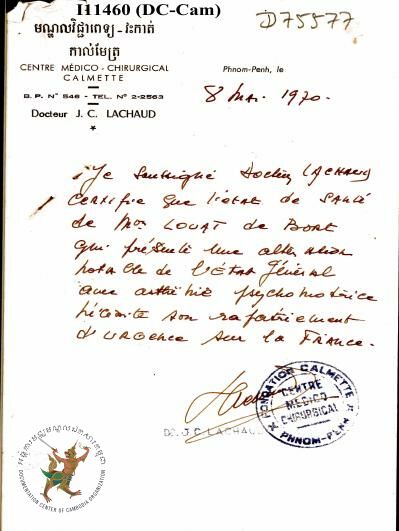 I1460 (DC-Cam)
D75577
មណ្ឌលវិជ្ជាពេទ្យ-វះកាត់
កាល់មែត្រ
CENTRE MÉDICO-CHIRURGICAL
CALMETTE
B. P. N° 546 - TEL. N° 2-2563
Docteur J. C. LACHAUD
Phnom-Penh, le
8 Mai 1970.
Je soussigné Docteur LACHAUD
certifie que l'état de santé
de Mr LOUAT de BORT
qui présente une altération
notable de l'état général
avec asthénie psychomotrice
nécessite son rapatriement
d'urgence sur la France.
Dr. J. C. LACHAUD
FONDATION CALMETTE
CENTRE
MEDICO
CHIRURGICAL
PHNOM-PENH
DOCUMENTATION CENTER OF CAMBODIA ORGANIZATION